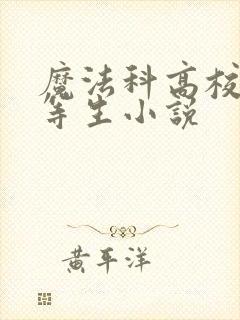 魔法科高校
等生小説
黄平洋